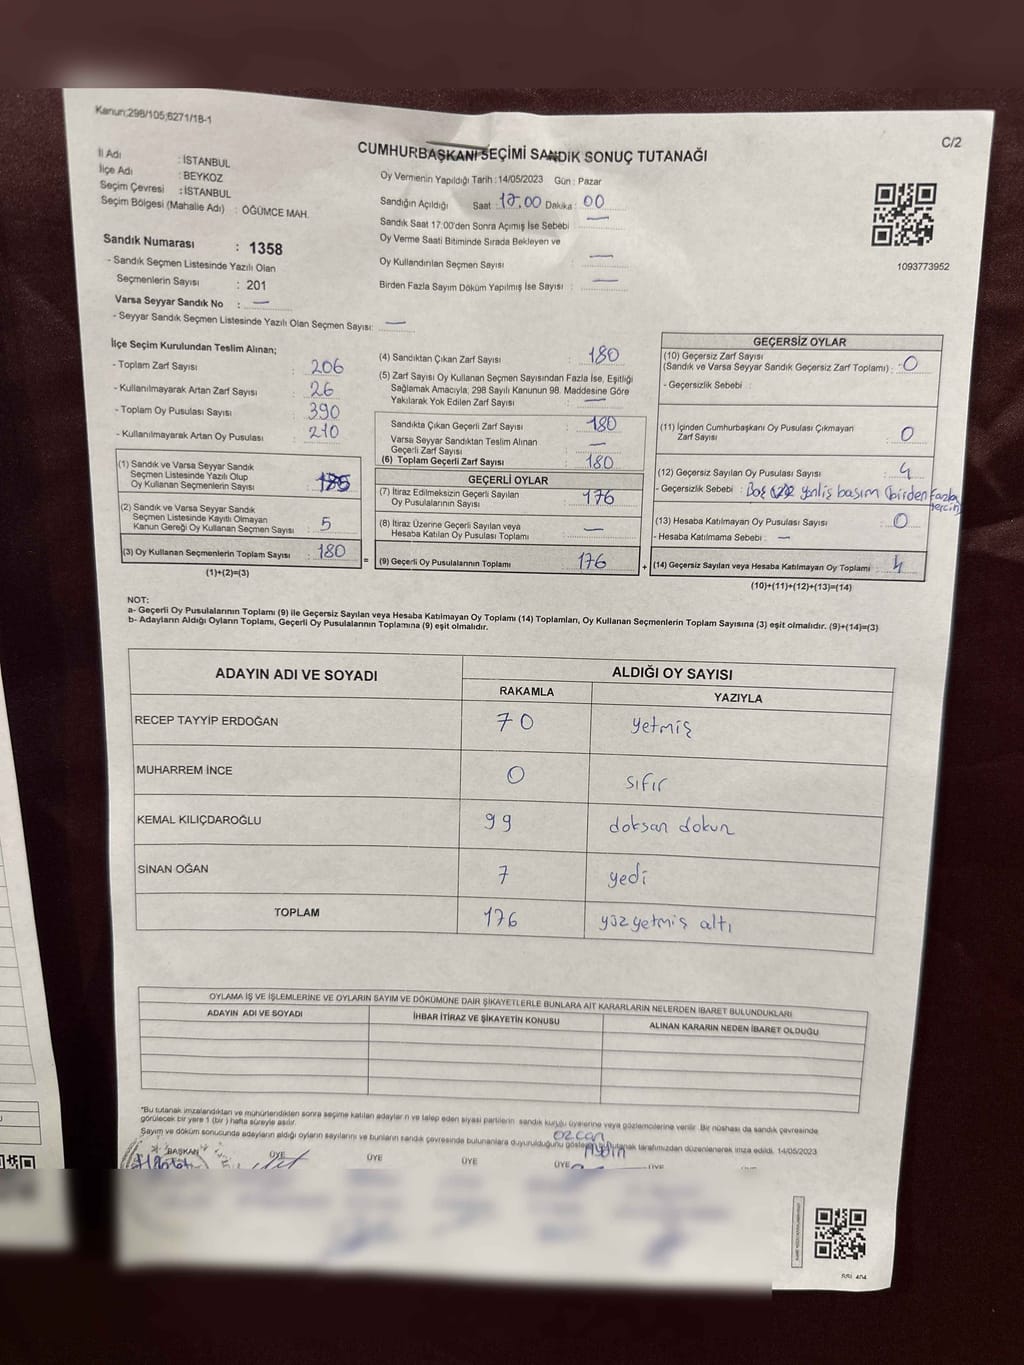 Kanun;298/105;6271/18-1
C/2
CUMHURBAŞKANI SEÇİMİ SANDIK SONUÇ TUTANAĞI
İl Adı : İSTANBUL
İlçe Adı : BEYKOZ
Seçim Çevresi : İSTANBUL
Seçim Bölgesi (Mahalle Adı) : ÖĞÜMCE MAH.
Oy Vermenin Yapıldığı Tarih : 14/05/2023 Gün : Pazar
Sandığın Açıldığı Saat : 17.00 Dakika : 00
Sandık Saat 17:00'den Sonra Açımış İse Sebebi —
Oy Verme Saati Bitiminde Sırada Bekleyen ve
Oy Kullandırılan Seçmen Sayısı : —
Birden Fazla Sayım Döküm Yapılmış İse Sayısı : —
1093773952
Sandık Numarası : 1358
- Sandık Seçmen Listesinde Yazılı Olan
Seçmenlerin Sayısı : 201
Varsa Seyyar Sandık No : —
- Seyyar Sandık Seçmen Listesinde Yazılı Olan Seçmen Sayısı: —
İlçe Seçim Kurulundan Teslim Alınan;
- Toplam Zarf Sayısı : 206
- Kullanılmayarak Artan Zarf Sayısı : 26
- Toplam Oy Pusulası Sayısı : 390
- Kullanılmayarak Artan Oy Pusulası : 210
(1) Sandık ve Varsa Seyyar Sandık
Seçmen Listesinde Yazılı Olup
Oy Kullanan Seçmenlerin Sayısı :
(2) Sandık ve Varsa Seyyar Sandık
Seçmen Listesinde Kayıtlı Olmayan
Kanun Gereği Oy Kullanan Seçmen Sayısı : 5
(3) Oy Kullanan Seçmenlerin Toplam Sayısı : 180
(1)+(2)=(3)
(4) Sandıktan Çıkan Zarf Sayısı : 180
(5) Zarf Sayısı Oy Kullanan Seçmen Sayısından Fazla İse, Eşitliği
Sağlamak Amacıyla, 298 Sayılı Kanunun 98. Maddesine Göre
Yakılarak Yok Edilen Zarf Sayısı : —
Sandıkta Çıkan Geçerli Zarf Sayısı : 180
Varsa Seyyar Sandıktan Teslim Alınan
Geçerli Zarf Sayısı : —
(6) Toplam Geçerli Zarf Sayısı : 180
GEÇERLİ OYLAR
(7) İtiraz Edilmeksizin Geçerli Sayılan
Oy Pusulasının Sayısı : 176
(8) İtiraz Üzerine Geçerli Sayılan veya
Hesaba Katılan Oy Pusulası Toplamı : —
= (9) Geçerli Oy Pusulalarının Toplamı : 176
GEÇERSİZ OYLAR
(10) Geçersiz Zarf Sayısı
(Sandık ve Varsa Seyyar Sandık Geçersiz Zarf Toplamı) : 0
- Geçersizlik Sebebi :
(11) İçinden Cumhurbaşkanı Oy Pusulası Çıkmayan
Zarf Sayısı : 0
(12) Geçersiz Sayılan Oy Pusulası Sayısı : 4
- Geçersizlik Sebebi : Boş yanlış basım (birden fazla
tercih)
(13) Hesaba Katılmayan Oy Pusulası Sayısı : 0
- Hesaba Katılmama Sebebi : —
+ (14) Geçersiz Sayılan veya Hesaba Katılmayan Oy Toplamı : 4
(10)+(11)+(12)+(13)=(14)
NOT:
a- Geçerli Oy Pusulalarının Toplamı (9) ile Geçersiz Sayılan veya Hesaba Katılmayan Oy Toplamı (14) Toplamları, Oy Kullanan Seçmenlerin Toplam Sayısına (3) eşit olmalıdır. (9)+(14)=(3)
b- Adayların Aldığı Oyların Toplamı, Geçerli Oy Pusulalarının Toplamına (9) eşit olmalıdır.
ADAYIN ADI VE SOYADI
ALDIĞI OY SAYISI
RAKAMLA YAZIYLA
RECEP TAYYİP ERDOĞAN 70 yetmiş
MUHARREM İNCE 0 sıfır
KEMAL KILIÇDAROĞLU 99 doksan dokuz
SİNAN OĞAN 7 yedi
TOPLAM 176 yüzyetmiş altı
OYLAMA İŞ VE İŞLEMLERİNE VE OYLARIN SAYIM VE DÖKÜMÜNE DAİR ŞİKAYETLERLE BUNLARA AİT KARARLARIN NELERDEN İBARET BULUNDUKLARI
ADAYIN ADI VE SOYADI İHBAR İTİRAZ VE ŞİKAYETİN KONUSU ALINAN KARARIN NEDEN İBARET OLDUĞU
*Bu tutanak imzalandıktan ve mühürlendikten sonra seçime katılan adaylar ın ve talep eden siyasi partilerin sandık kurulu üyelerine veya gözlemcilerine verilir. Bir nüshası da sandık çevresinde
görülecek bir yere 1 (bir ) hafta süreyle asılır.
Sayım ve döküm sonucunda adayların aldığı oyların sayılarını ve bunların sandık çevresinde bulunanlara duyurulduğunu gösteren tutanak tarafımızdan düzenlenerek imza edildi. 14/05/2023
Özcan
Aydın
BAŞKAN ÜYE ÜYE ÜYE ÜYE ÜYE